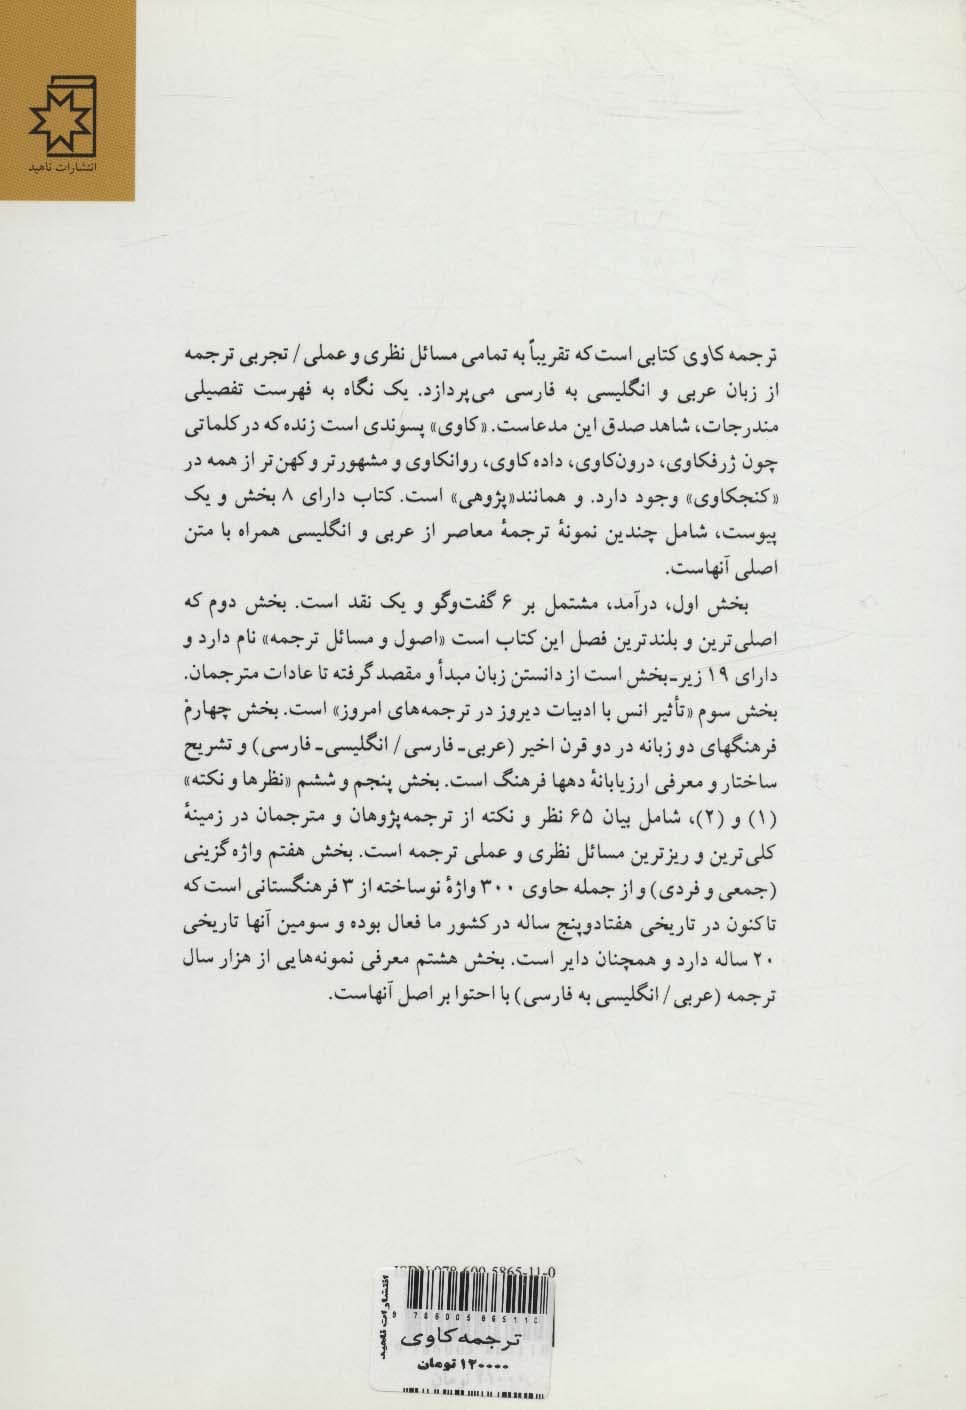 انتشارات ناهید
ترجمه کاوی کتابی است که تقریباً به تمامی مسائل نظری و عملی / تجربی ترجمه
از زبان عربی و انگلیسی به فارسی می‌پردازد. یک نگاه به فهرست تفصیلی
مندرجات، شاهد صدق این مدعاست. «کاوی» پسوندی است زنده که در کلماتی
چون ژرفکاوی، درون‌کاوی، داده‌کاوی، روانکاوی و مشهورتر و کهن‌تر از همه در
«کنجکاوی» وجود دارد. و همانند «پژوهی» است. کتاب دارای ۸ بخش و یک
پیوست، شامل چندین نمونهٔ ترجمهٔ معاصر از عربی و انگلیسی همراه با متن
اصلی آنهاست.
بخش اول، درآمد، مشتمل بر ۶ گفت‌وگو و یک نقد است. بخش دوم که
اصلی‌ترین و بلندترین فصل این کتاب است «اصول و مسائل ترجمه» نام دارد و
دارای ۱۹ زیر-بخش است از دانستن زبان مبدأ و مقصد گرفته تا عادات مترجمان.
بخش سوم «تأثیر انس با ادبیات دیروز در ترجمه‌های امروز» است. بخش چهارمْ
فرهنگهای دو زبانه در دو قرن اخیر (عربی- فارسی / انگلیسی- فارسی) و تشریح
ساختار و معرفی ارزیابانهٔ دهها فرهنگ است. بخش پنجم و ششم «نظرها و نکته»
(۱) و (۲)، شامل بیان ۶۵ نظر و نکته از ترجمه‌پژوهان و مترجمان در زمینهٔ
کلی‌ترین و ریزترین مسائل نظری و عملی ترجمه است. بخش هفتم واژه گزینی
(جمعی و فردی) و از جمله حاوی ۳۰۰ واژهٔ نوساخته از ۳ فرهنگستانی است که
تاکنون در تاریخی هفتادوپنج ساله در کشور ما فعال بوده و سومین آنها تاریخی
۲۰ ساله دارد و همچنان دایر است. بخش هشتم معرفی نمونه‌هایی از هزار سال
ترجمه (عربی / انگلیسی به فارسی) با احتوا بر اصل آنهاست.
ISBN 978-600-5865-11-0
انتشارات ناهید
ترجمه کاوی
۱۲۰۰۰۰ تومان